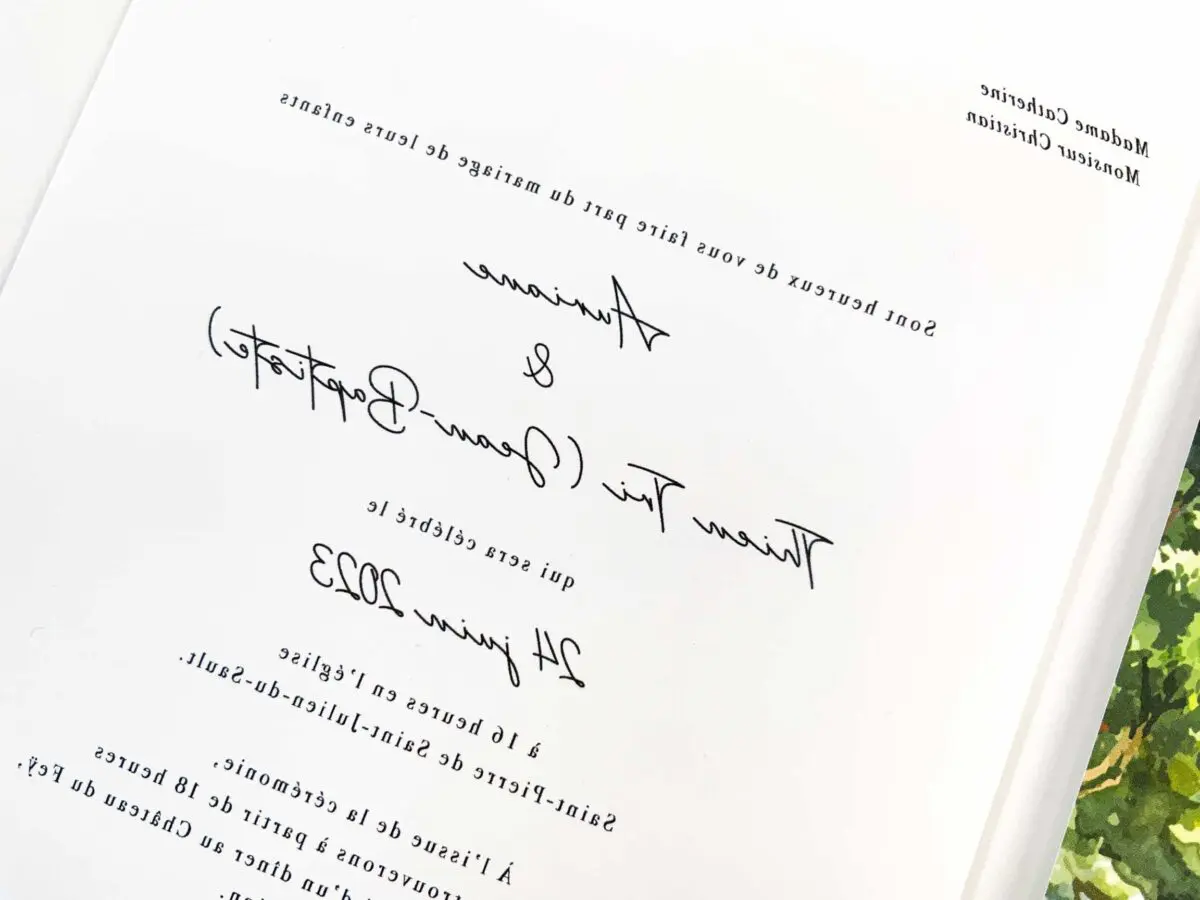 Madame Catherine
Monsieur Christian
Sont heureux de vous faire part du mariage de leurs enfants
Auriane
&
Thien Tri (Jean-Baptiste)
qui sera célébré le
24 juin 2023
à 16 heures en l'église
Saint-Pierre de Saint-Julien-du-Sault.
À l'issue de la cérémonie,
à partir de 18 heures
d'un dîner au Château du Feÿ,